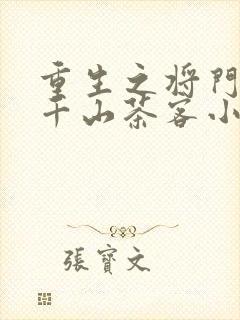 重生之将門
千山茶客小
張寶文